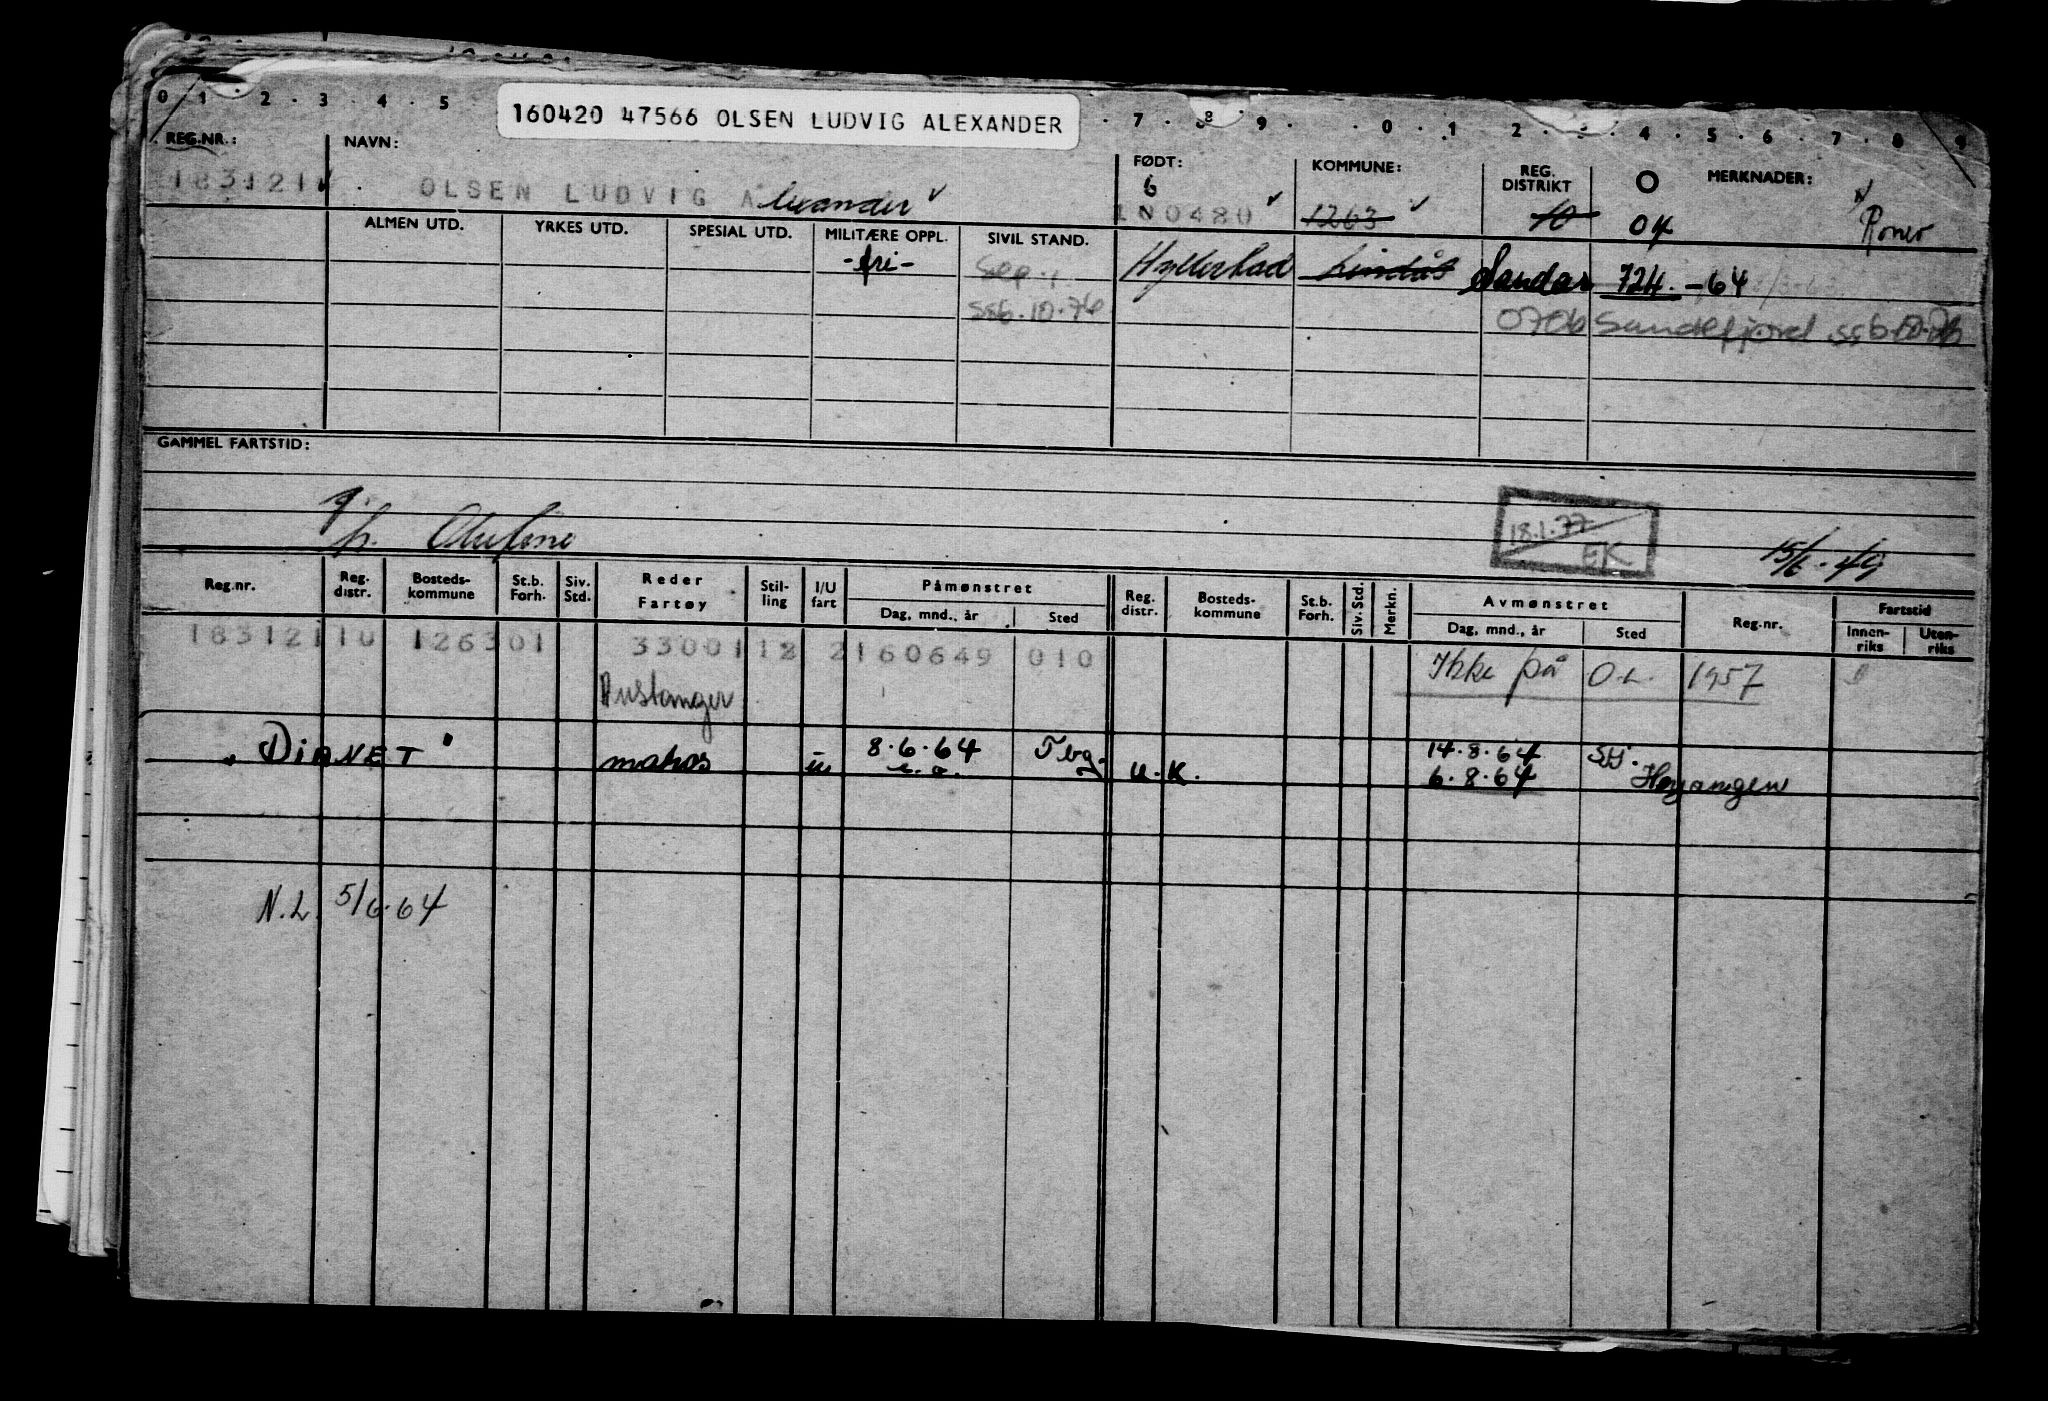 0 1 . 2 . 3 . 4 . 5 . 7 . 8 . 9 . . 0 . 1 . 2 . 3 . 4 . 5 . 6 . 7 . 8 9
160420 47566 OLSEN LUDVIG ALEXANDER
REG.NR.: NAVN: FØDT: KOMMUNE: REG. DISTRIKT O MERKNADER:
183121 OLSEN LUDVIG Alexander 6 0480 1263 10 04
ALMEN UTD. YRKES UTD. SPESIAL UTD. MILITÆRE OPPL. SIVIL STAND.
-fri- Sep. Hyllestad Lindås Sandar 724.-64
ssb.10.76 0706 Sandefjord ssb 10.76
GAMMEL FARTSTID:
18.1.77
EK
15/6-49
Reg.nr. Reg. distr. Bosteds-kommune St.b. Forh. Siv. Std. Reder Fartøy Stil-ling I/U fart Påmønstret Dag, mnd., år Sted Reg. distr. Bosteds-kommune St.b. Forh. Siv. Std. Merkn. Avmønstret Dag, mnd., år Sted Reg.nr. Fartstid Innen-riks Uten-riks
183121 10 126301 33001 12 2 160649 010 Ikke på O.L. 1957
Austanger
"DIANET" matros u 8.6.64 Tbg. U.K. 14.8.64 SJ.
6.8.64 Høyangen
N.L. 5/6.64